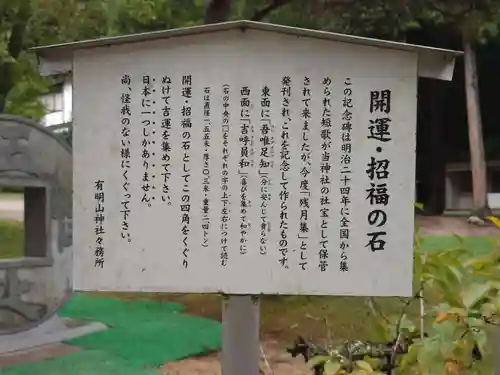 開運・招福の石
この記念碑は明治二十四年に全国から集
められた短歌が当神社の社宝として保管
されて来ましたが、今度「残月集」として
発刊され、これを記念して作られたものです。
東面に「吾唯足知」(分に安んじて貪らない)
西面に「吉呼員和」(喜びを集めて和やかに)
(石の中央の口をそれぞれの字の上下左右につけて読む
石は直径一.五五米・厚さ〇.三米・重量二.四トン)
開運・招福の石としてこの四角をくぐり
ぬけて吉運を集めて下さい。
日本に一つしかありません。
尚、怪我のない様にくぐって下さい。
有明山神社々務所